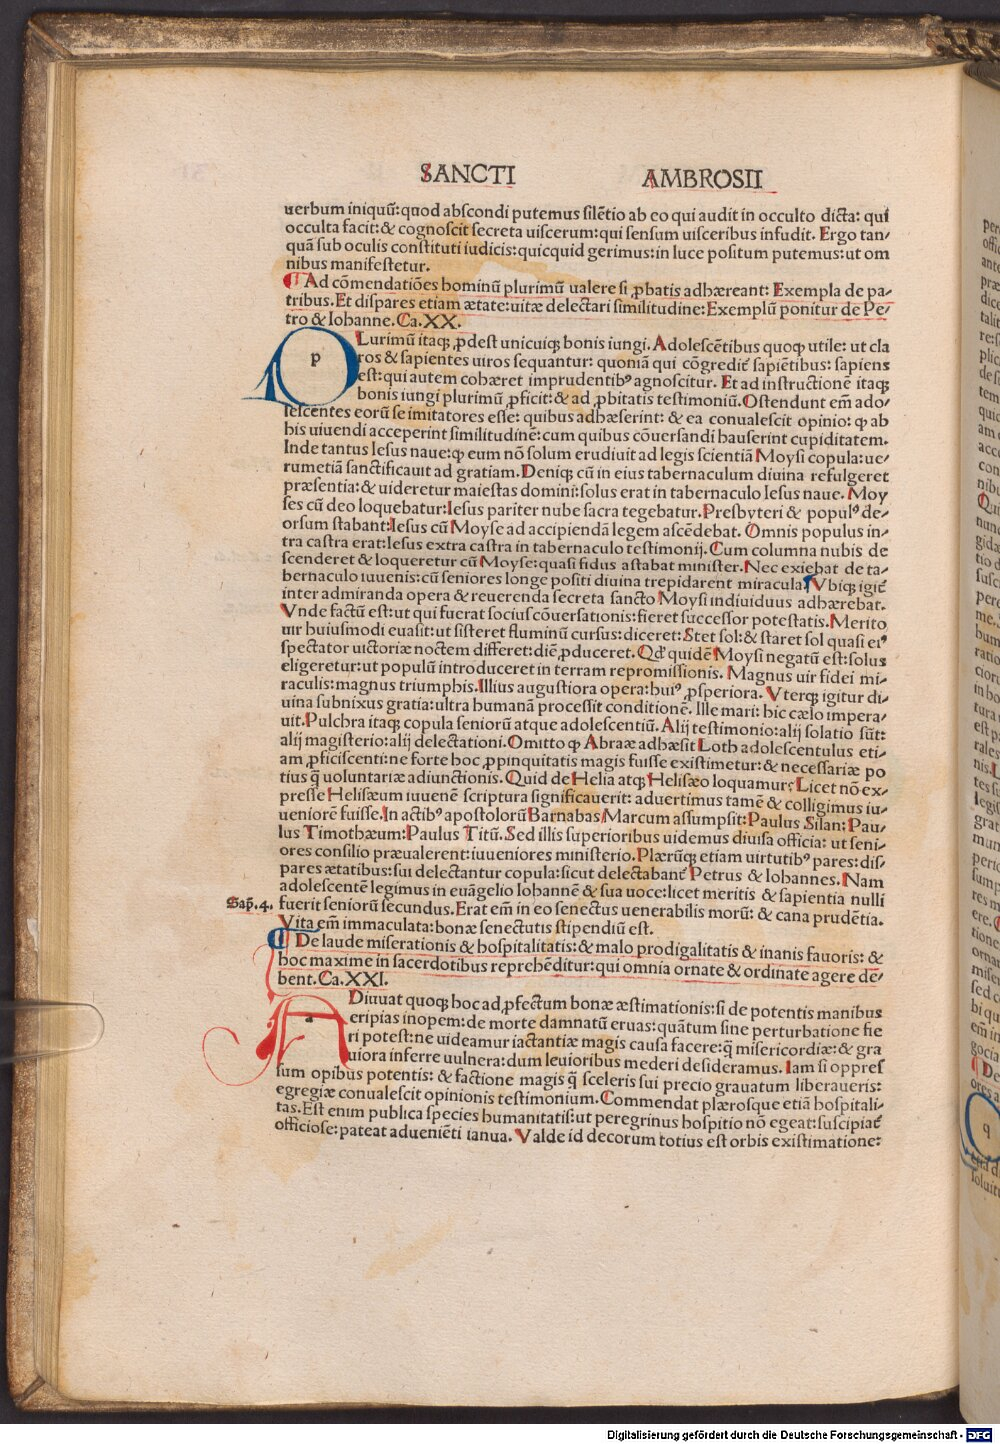 SANCTI AMBROSII
uerbum iniquū: quod abscondi putemus silētio ab eo qui audit in occulto dicta: qui
occulta facit: & cognoscit secreta uiscerum: qui sensum uisceribus infudit. Ergo tan⸗
quā sub oculis constituti iudicis: quicquid gerimus: in luce positum putemus: ut om
nibus manifestetur.
¶ Ad cōmendatiōes hominū plurimū ualere si ꝓbatis adhæreant: Exempla de pa⸗
tribus. Et dispares etiam ætate: uitæ delectari similitudine: Exemplū ponitur de Pe⸗
tro & Iohanne. Ca. XX.
p
Lurimū itaqꝫ ꝓdest unicuiqꝫ bonis iungi. Adolescētibus quoqꝫ utile: ut cla
ros & sapientes uiros sequantur: quoniā qui cōgredit᷑ sapiētibus: sapiens
est: qui autem cohæret imprudentibꝰ agnoscitur. Et ad instructionē itaqꝫ
bonis iungi plurimū ꝓficit: & ad ꝓbitatis testimoniū. Ostendunt em̄ ado⸗
lescentes eorū se imitatores esse: quibus adhæserint: & ea conualescit opinio: ꝙ ab
his uiuendi acceperint similitudinē: cum quibus cōuersandi hauserint cupiditatem.
Inde tantus Iesus naue: ꝙ eum nō solum erudiuit ad legis scientiā Moysi copula: ue⸗
rumetiā sanctificauit ad gratiam. Deniqꝫ cū in eius tabernaculum diuina refulgeret
præsentia: & uideretur maiestas domini: solus erat in tabernaculo Iesus naue. Moy
ses cū deo loquebatur: Iesus pariter nube sacra tegebatur. Presbyteri & populꝰ de⸗
orsum stabant: Iesus cū Moyse ad accipiendā legem ascēdebat. Omnis populus in⸗
tra castra erat: Iesus extra castra in tabernaculo testimonij. Cum columna nubis de
scenderet & loqueretur cū Moyse: quasi fidus astabat minister. Nec exiebat de ta⸗
bernaculo iuuenis: cū seniores longe positi diuina trepidarent miracula. Vbiqꝫ igit᷑
inter admiranda opera & reuerenda secreta sancto Moysi indiuiduus adhærebat.
Vnde factū est: ut qui fuerat socius cōuersationis: fieret successor potestatis. Merito
uir huiusmodi euasit: ut sisteret fluminū cursus: diceret: Stet sol: & staret sol quasi eiꝰ
spectator uictoriæ noctem differet: diē ꝓduceret. Qd̓ quidē Moysi negatū est: solus
eligeretur: ut populū introduceret in terram repromissionis. Magnus uir fidei mi⸗
raculis: magnus triumphis. Illius augustiora opera: huiꝰ ꝓsperiora. Vterqꝫ igitur di⸗
uina subnixus gratia: ultra humanā processit conditionē. Ille mari: hic cælo impera⸗
uit. Pulchra itaqꝫ copula seniorū atque adolescentiū. Alij testimonio: alij solatio sūt:
alij magisterio: alij delectationi. Omitto ꝙ Abraæ adhæsit Loth adolescentulus eti⸗
am ꝓficiscenti: ne forte hoc ꝓpinquitatis magis fuisse existimetur: & necessariæ po
tius q̄ uoluntariæ adiunctionis. Quid de Helia atqꝫ Helisæo loquamur? Licet nō ex⸗
presse Helisæum iuuenē scriptura significauerit: aduertimus tamē & colligimus iu⸗
ueniorē fuisse. In actibꝰ apostolorū Barnabas Marcum assumpsit: Paulus Silan: Pau⸗
lus Timothæum: Paulus Titū. Sed illis superioribus uidemus diuisa officia: ut seni⸗
ores consilio præualerent: iuueniores ministerio. Plærūqꝫ etiam uirtutibꝰ pares: dis⸗
pares ætatibus: sui delectantur copula: sicut delectabant᷑ Petrus & Iohannes. Nam
adolescentē legimus in euāgelio Iohannē & sua uoce: licet meritis & sapientia nulli
Sap̄. 4. fuerit seniorū secundus. Erat em̄ in eo senectus uenerabilis morū: & cana prudētia.
Vita em̄ immaculata: bonæ senectutis stipendiū est.
¶ De laude miserationis & hospitalitatis: & malo prodigalitatis & inanis fauoris: &
hoc maxime in sacerdotibus reprehēditur: qui omnia ornate & ordinate agere de⸗
bent. Ca. XXI.
a
Diuuat quoqꝫ hoc ad ꝓfectum bonæ æstimationis: si de potentis manibus
eripias inopem: de morte damnatū eruas: quātum sine perturbatione fie
ri potest: ne uideamur iactantiæ magis causa facere: q̄ misericordiæ: & gra
uiora inferre uulnera: dum leuioribus mederi desideramus. Iam si oppres
sum opibus potentis: & factione magis q̄ sceleris sui precio grauatum liberaueris:
egregiæ conualescit opinionis testimonium. Commendat plærosque etiā hospitali⸗
tas. Est enim publica species humanitatis: ut peregrinus hospitio nō egeat: suscipiat᷑
officiose: pateat adueniēti ianua. Valde id decorum totius est orbis existimatione:
Digitalisierung gefördert durch die Deutsche Forschungsgemeinschaft - DFG